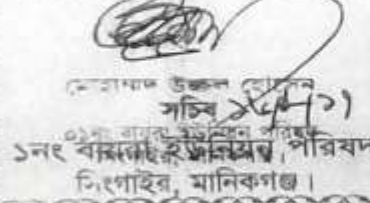 মোহাম্মদ উজ্জল হোসেন
সচিব
১নং বায়রা ইউনিয়ন পরিষদ
সিংগাইর, মানিকগঞ্জ।